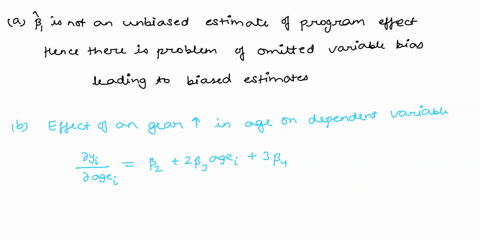 (a) β̂₁ is not an unbiased estimate of program effect
Hence there is problem of omitted variable bias
leading to biased estimates
(b) Effect of an year ↑ in age on dependent variable
∂yᵢ/∂ageᵢ = β₂ + 2β₃ ageᵢ + 3β₄